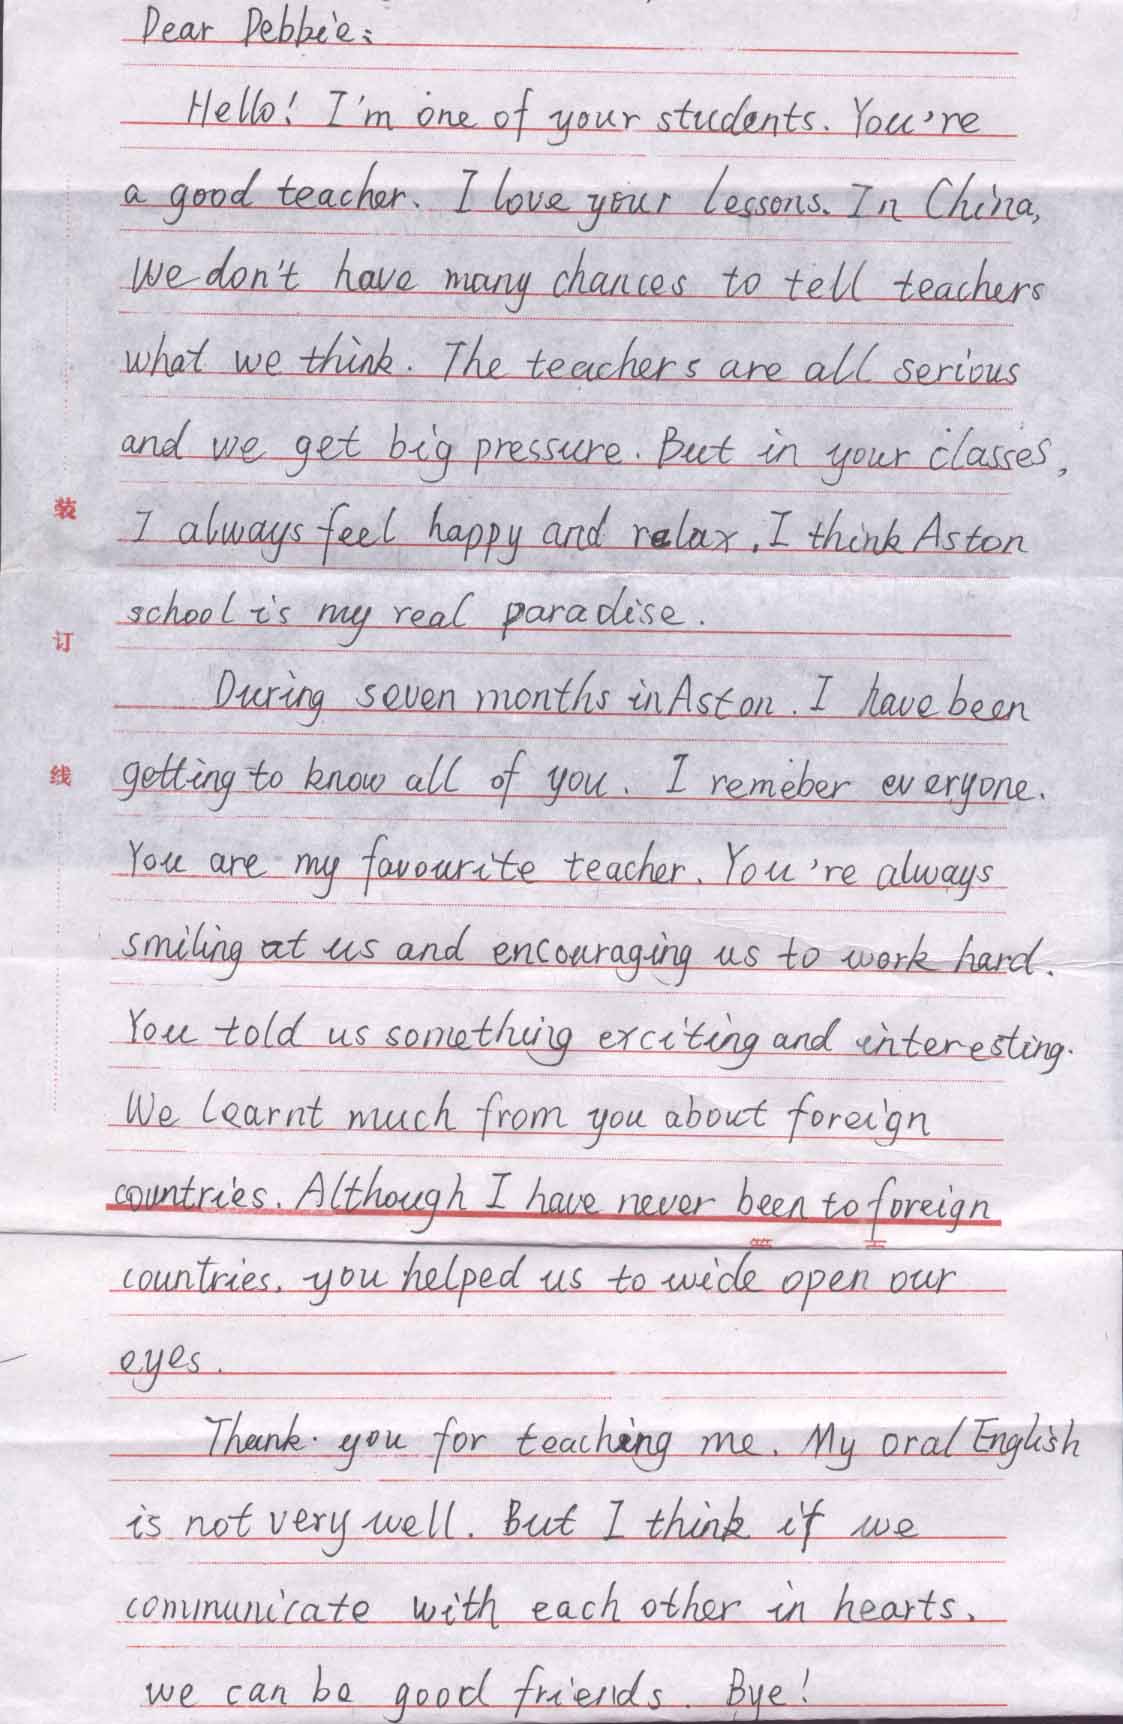 Dear Debbie:
Hello! I'm one of your students. You're
a good teacher. I love your lessons. In China,
we don't have many chances to tell teachers
what we think. The teachers are all serious
and we get big pressure. But in your classes,
I always feel happy and relax. I think Aston
school is my real paradise.
During seven months in Aston. I have been
getting to know all of you. I remeber everyone.
You are my favourite teacher. You're always
smiling at us and encouraging us to work hard.
You told us something exciting and interesting.
We learnt much from you about foreign
countries. Although I have never been to foreign
countries, you helped us to wide open our
eyes.
Thank you for teaching me. My oral English
is not very well. But I think if we
communicate with each other in hearts,
we can be good friends. Bye!
装
订
线